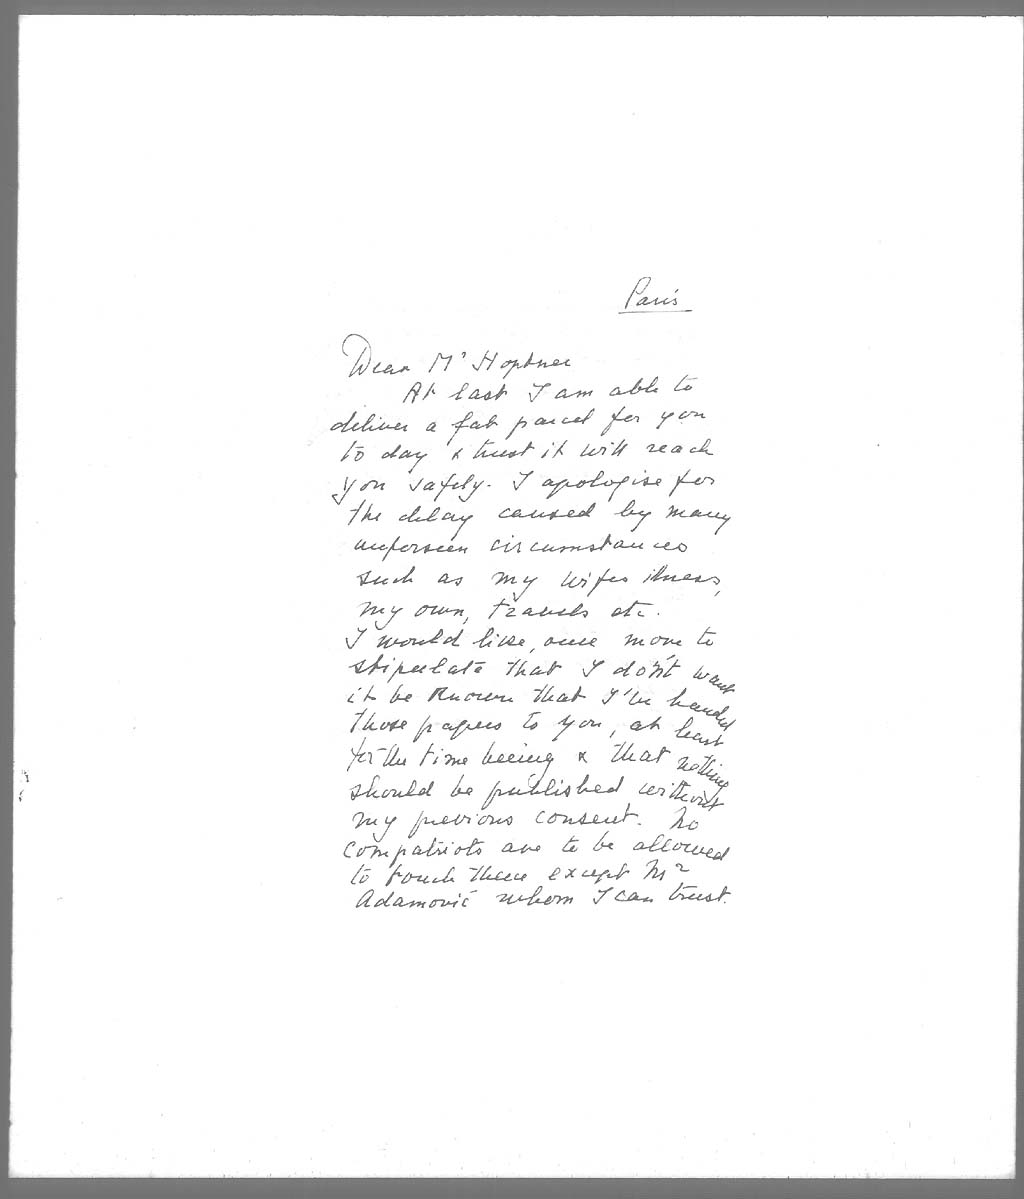 Paris
Dear Mr Hoptner
At last I am able to
deliver a fat parcel for you
to day & trust it will reach
you safely. I apologise for
the delay caused by many
unforseen circumstances
such as my wifes illness,
my own, travels etc.
I would like, once more to
stipulate that I don't want
it be known that I've handed
those papers to you, at least
for the time beeing & that nothing
should be published without
my previous consent. No
compatriots are to be allowed
to touch them except Mr
Adamović whom I can trust.